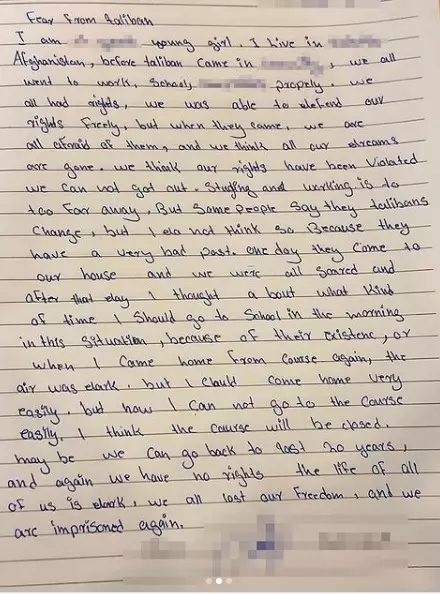 Fear from taliban
I am young girl. I live in
Afghanistan, before taliban came in , we all
went to work, Schools, propely. we
all had rights, we was able to defend our
rights freely, but when they came, we are
all afraid of them, and we think all our dreams
are gone. we think our rights have been Violated
we can not got out. Studing and working is to
too far away. But some people say they talibans
Change, but I do not think so. Because they
have a very bad past. one day they come to
our house and we were all scared and
after that day I thought a bout what kind
of time I should go to School in the morning
in this situation, because of their existenc, or
when I came home from course again, the
air was dark. but I could come home very
easily. but now I can not go to the course
easily. I think the course will be closed.
may be we can go back to last 20 years,
and again we have no rights the life of all
of us is dark, we all lost our freedom, and we
are imprisoned again.